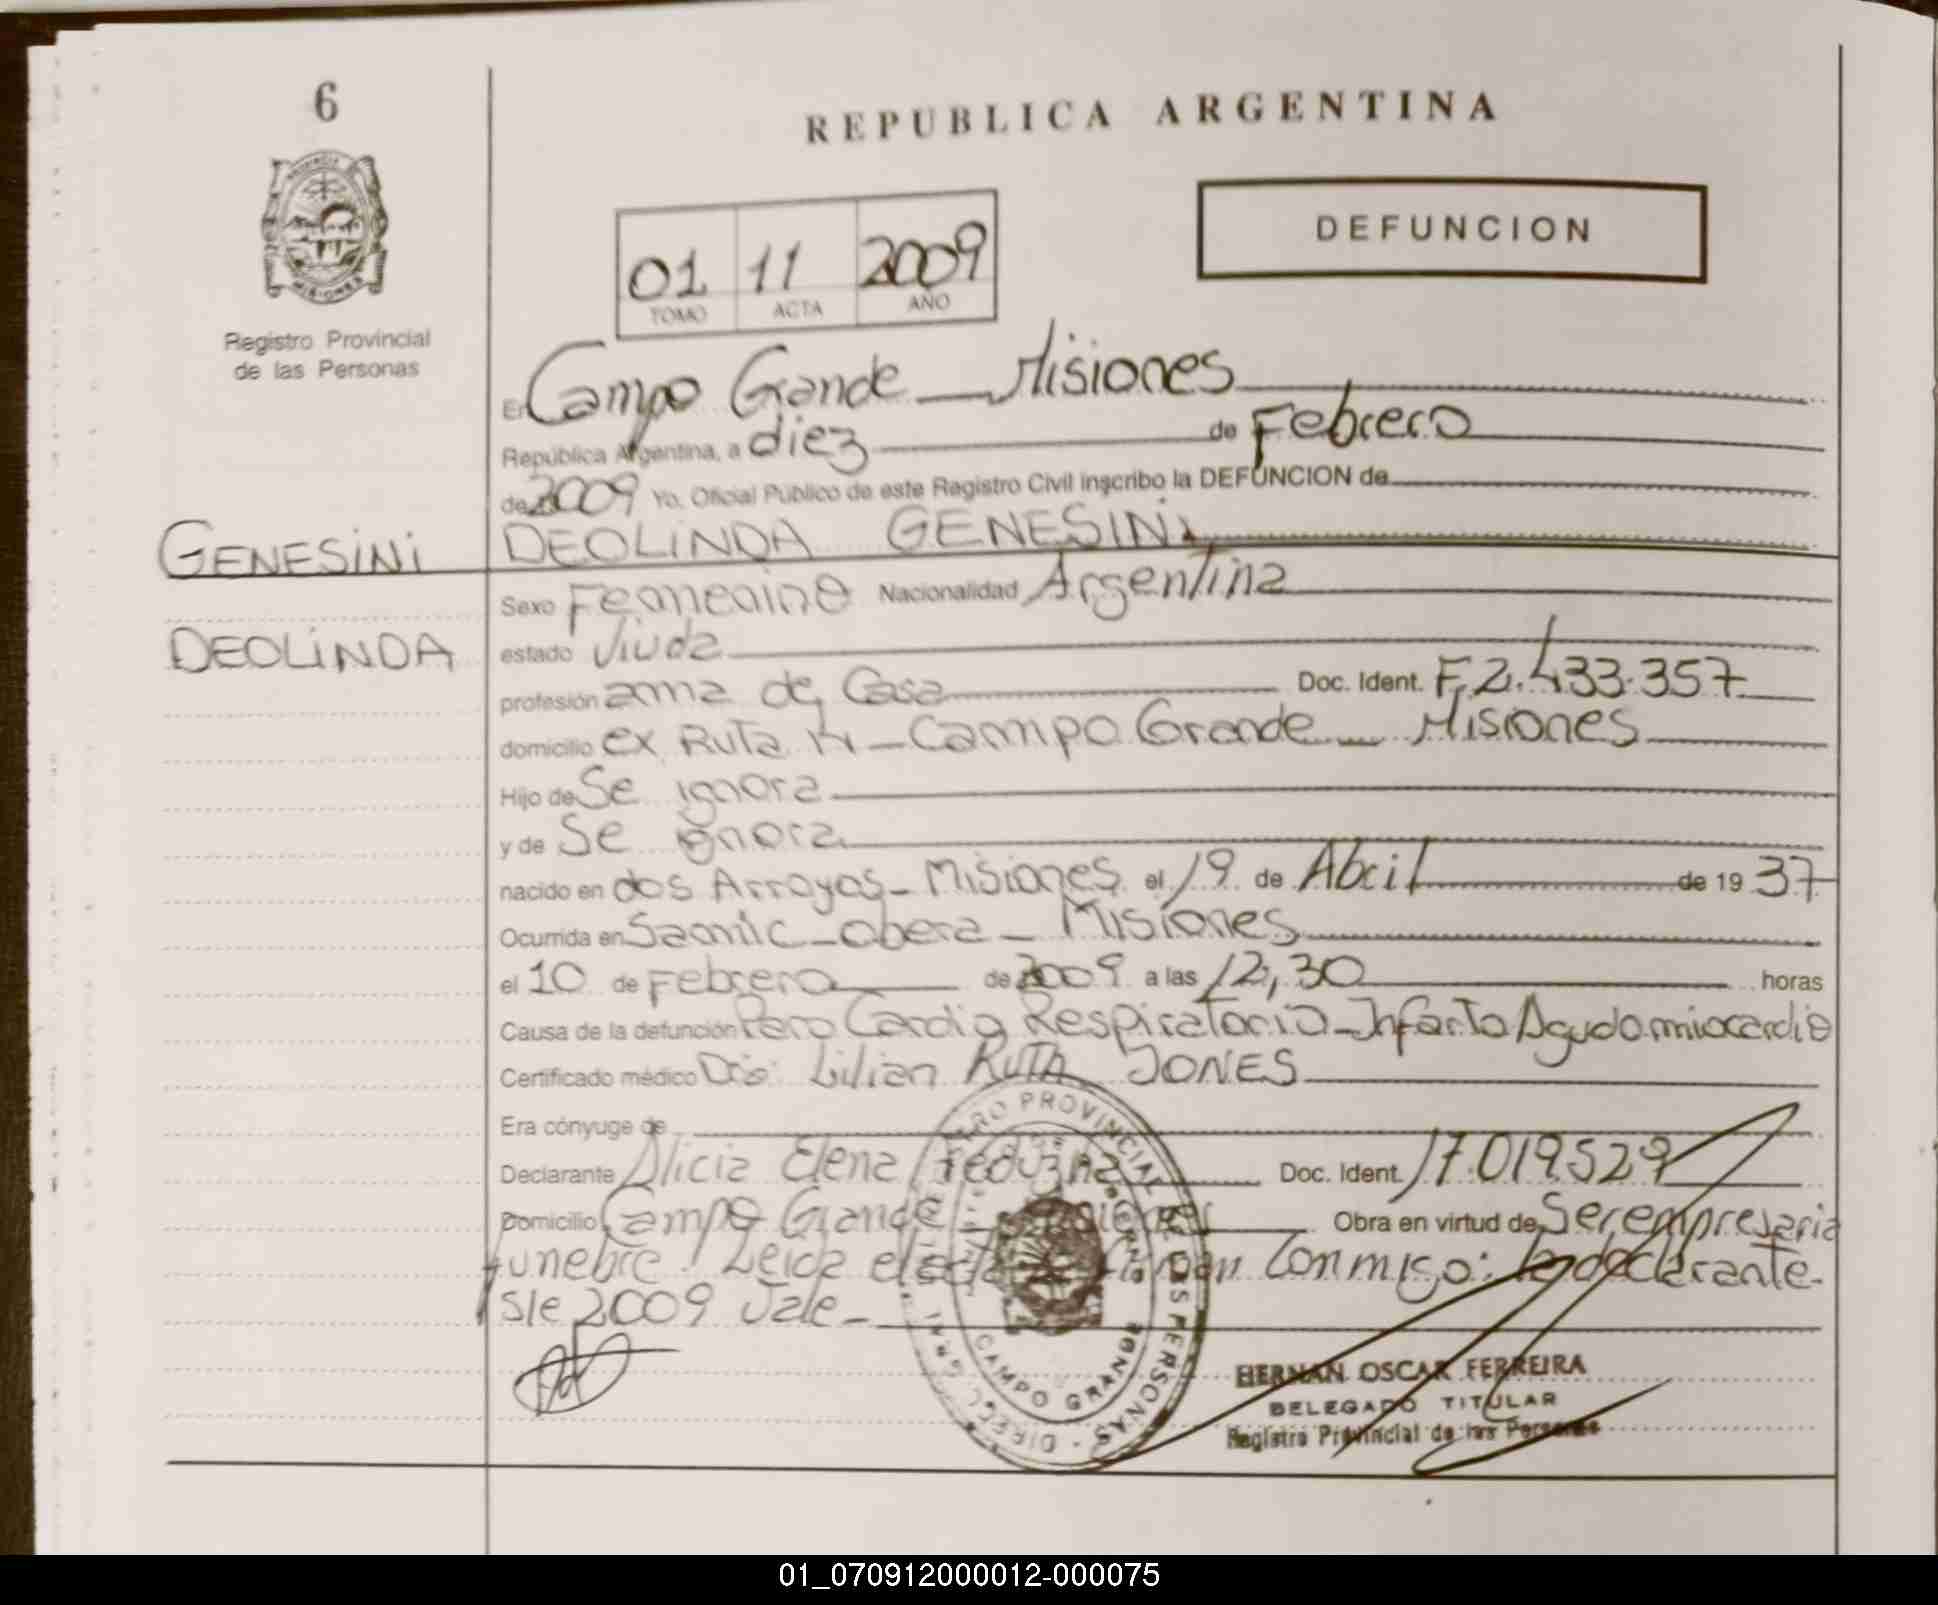 6
REPUBLICA ARGENTINA
PROVINCIA
MISIONES
Registro Provincial
de las Personas
01 11 2009
TOMO ACTA AÑO
DEFUNCION
En Campo Grande _ Misiones
República Argentina, a diez de Febrero
de 2009 Yo, Oficial Público de este Registro Civil inscribo la DEFUNCION de
GENESINI
DEOLINDA
DEOLINDA GENESINI
Sexo Femenino Nacionalidad Argentina
estado Viuda
profesión ama de Casa Doc. Ident. F.2.433.357
domicilio ex Ruta 14 _ Campo Grande _ Misiones
Hijo de Se ignora
y de Se ignora
nacido en dos Arroyos _ Misiones el 19 de Abril de 19 37
Ocurrida en Samic _ obera _ Misiones
el 10 de Febrero de 2009 a las 12,30 horas
Causa de la defunción Paro Cardio Respiratorio _ Infarto Agudo miocardio
Certificado médico Dra: Lilian RUTH JONES
Era cónyuge de
Declarante Alicia Elena Doc. Ident. 17.019.529
Domicilio Campo Grande _ Misiones Obra en virtud de Ser empresaria
funebre. Leida el acta firman Conmigo: la declarante-
s/e 2009 Vale _
CAMPO GRANDE
HERNAN OSCAR FERREIRA
DELEGADO TITULAR
Registro Provincial de las Personas
01_070912000012-000075